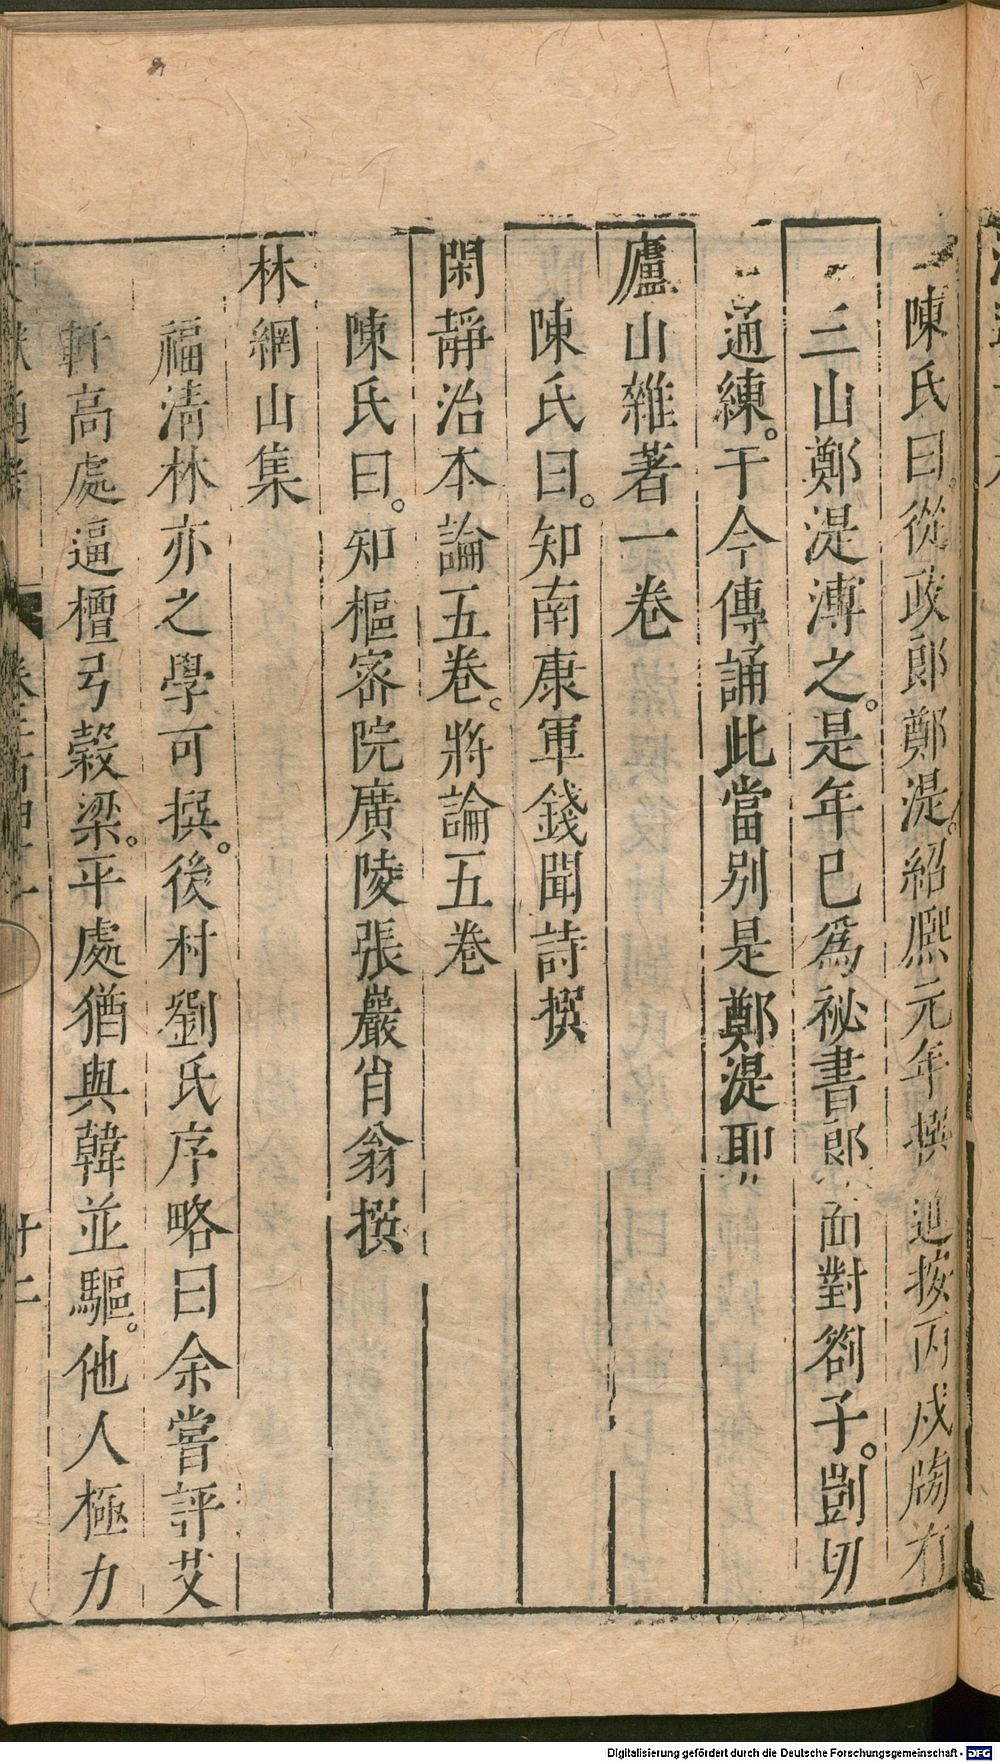 陳氏曰。從政郎鄭湜。紹熙元年撰進按丙戌牓有
三山鄭湜溥之。是年已爲祕書郎面對劄子。剴切
通練。于今傳誦此當別是鄭湜耶
廬山雜著一卷
陳氏曰。知南康軍錢聞詩撰
閑靜治本論五卷。將論五卷
陳氏曰。知樞密院廣陵張巖肖翁撰
林網山集
福清林亦之學可撰。後村劉氏序略曰余嘗評艾
軒高處逼檀弓穀梁。平處猶與韓並驅。他人極力
通考
卷
十二
Digitalisierung gefördert durch die Deutsche Forschungsgemeinschaft - DFG